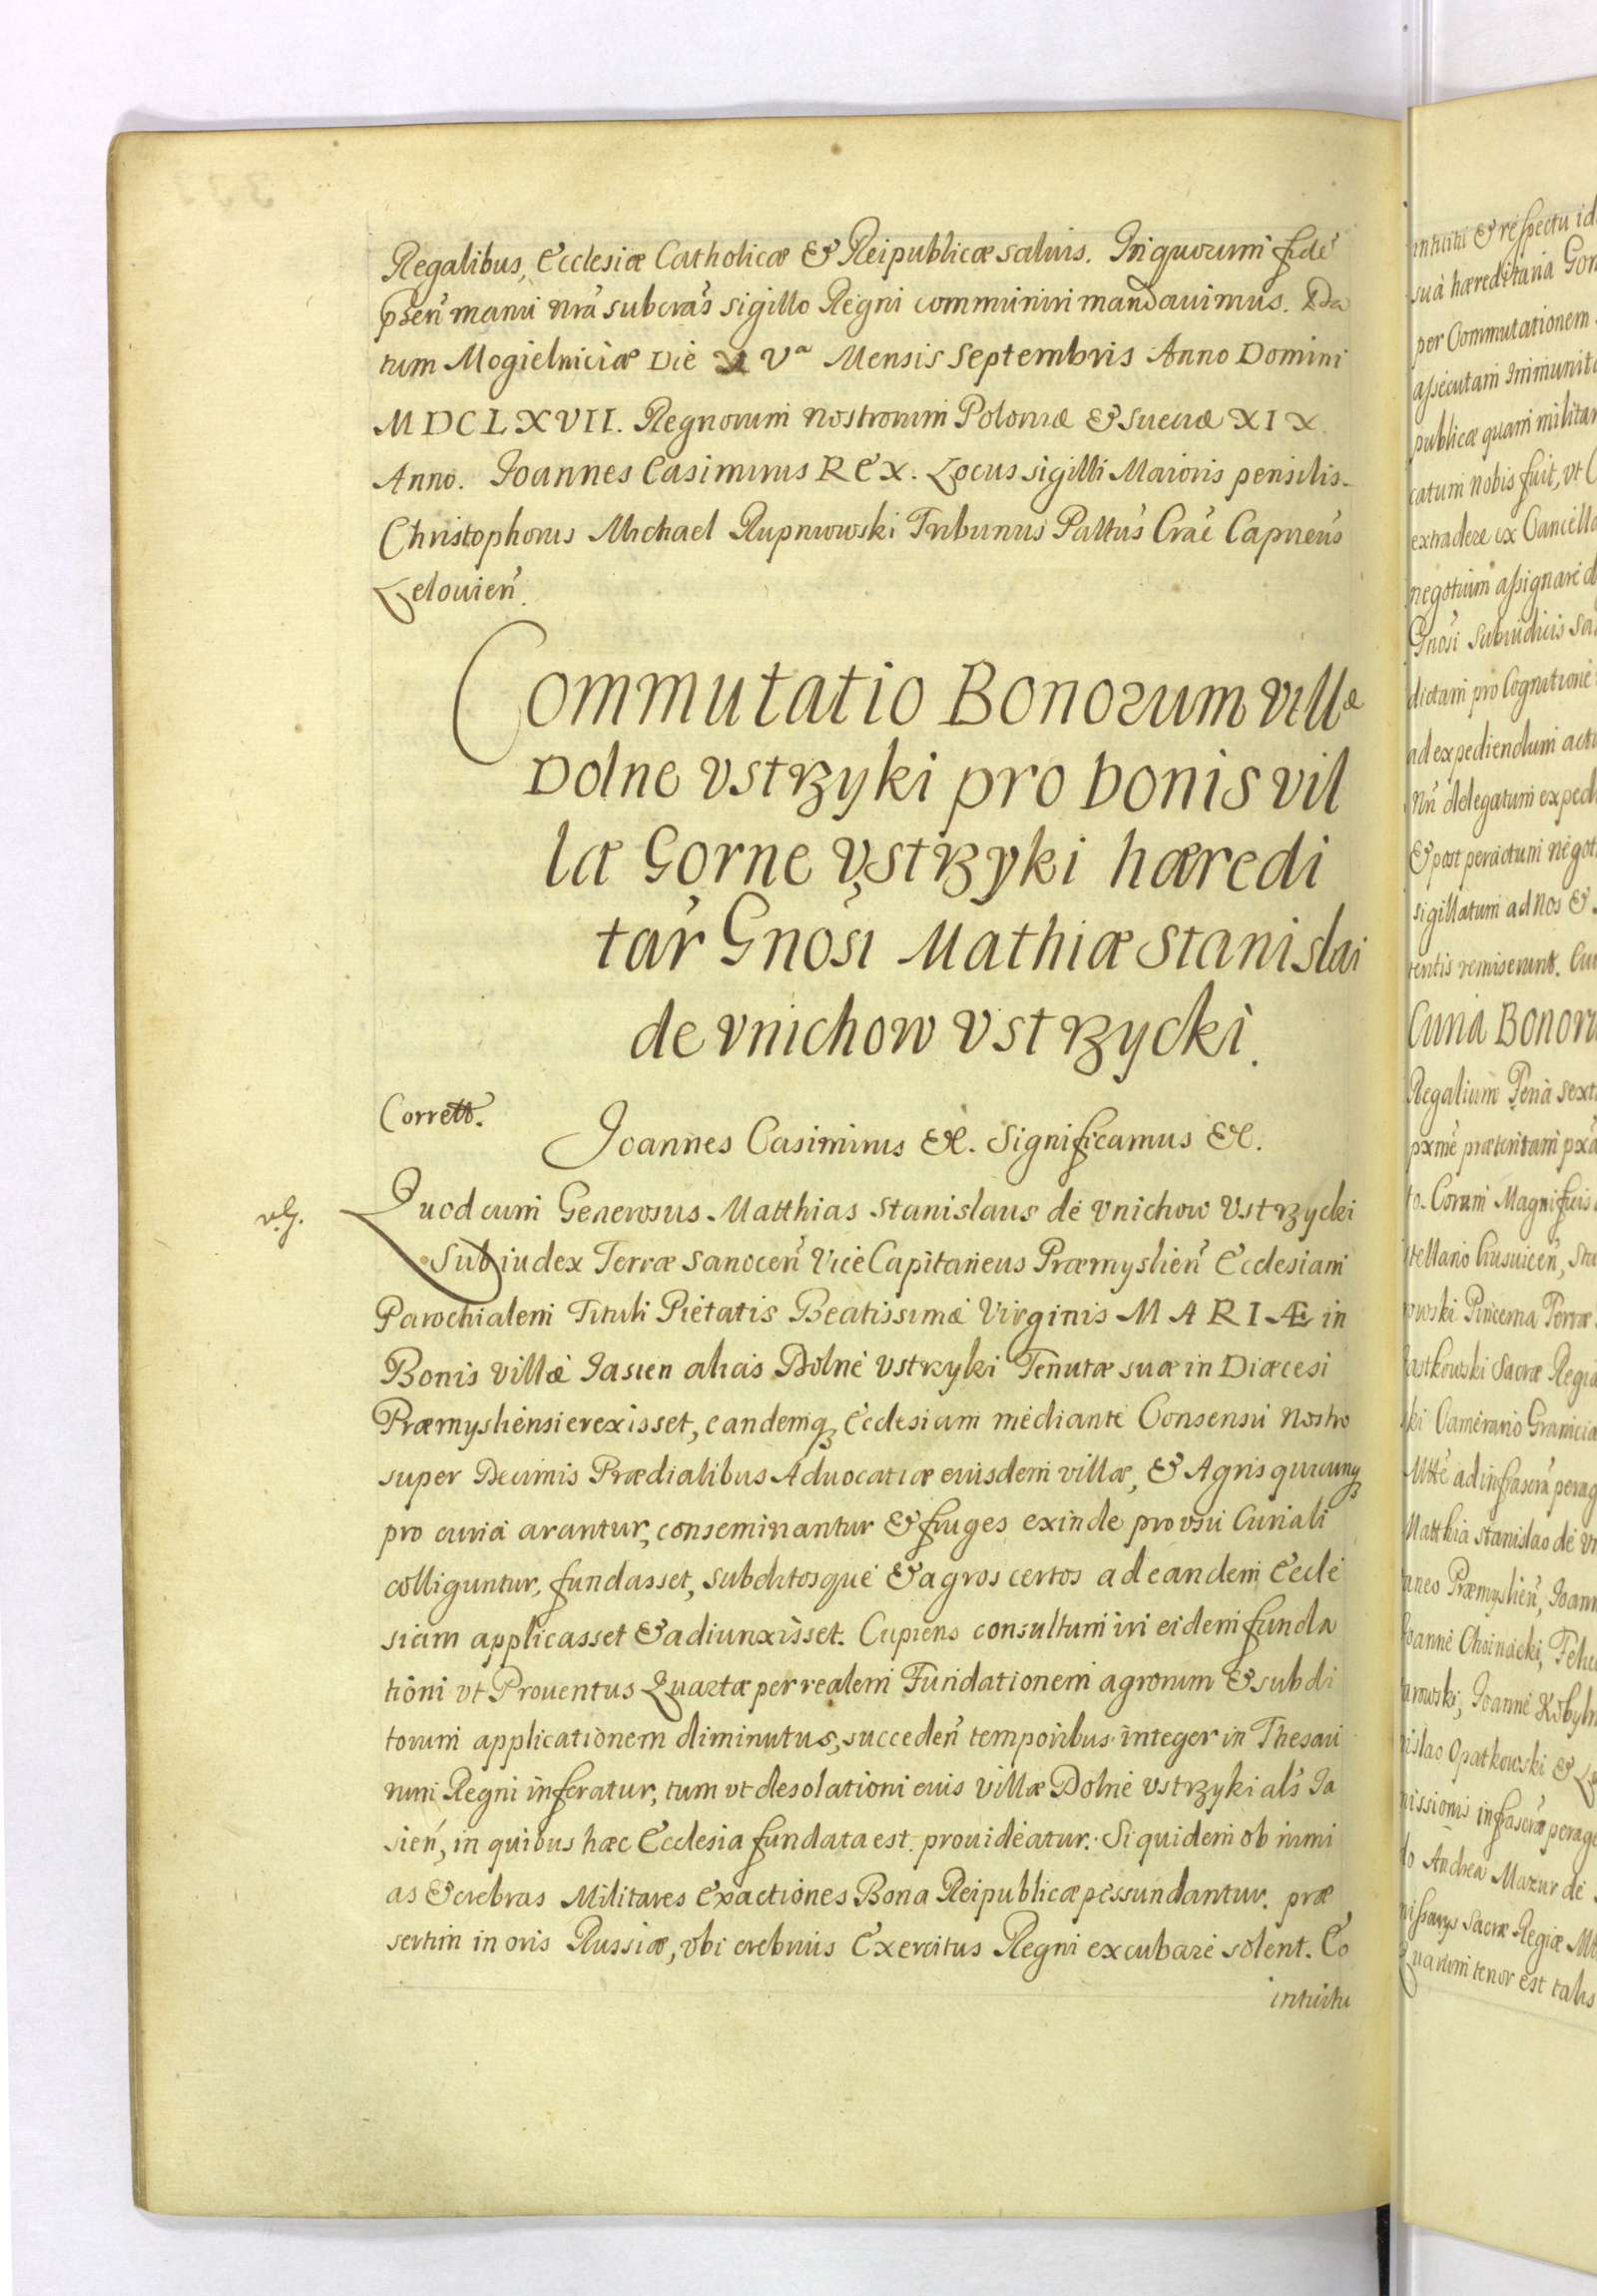 Regalibus, Ecclesiæ Catholicæ & Reipublicæ saluis. In quorum fidē
pseñ manu nrã subcras sigillo Regni communiri mandauimus. Da
tum Mogielniciæ Die Vª Mensis Septembris Anno Domini
MDCLXVII. Regnorum nostrorum Poloniæ & Sueciæ XIX
Anno. Joannes Casimirus REX. Locus sigilli Maioris pensilis.
Christophorus Michael Rupniowski Tribunus Pałťus Crac̃ Capneus
Lelouieñ.
Commutatio Bonorum villæ
Dolne Vstrzyki pro bonis vil
læ Gorne Vstrzyki hæredi
tar̃ Gnosi Mathiæ Stanislai
de Vnichow Vstrzycki.
Corrett.
Joannes Casimirus &c. Significamus &c.
Quod cum Generosus Matthias Stanislaus de Vnichow Vstrzycki
Subiudex Terræ Sanoceñ Vice Capitaneus Præmyslieñ Ecclesiam
Parochialem Tituli Pietatis Beatissimæ Virginis MARIÆ in
Bonis villæ Jasien alias Dolne Vstrzyki Tenutæ suæ in Diæcesi
Præmysliensi erexisset, eandemq; Ecclesiam mediante Consensu Nostro
super Decimis Prædialibus Aduocatiæ eiusdem villæ, & Agris quicunq;
pro curia arantur, conseminantur & fruges exinde pro vsu Curiali
colliguntur, fundasset, subditosque & agros certos ad eandem Eccle
siam applicasset & adiunxisset. Cupiens consultum iri eidem funda
tioni vt Prouentus Quartæ per realem Fundationem agrorum & subdi
torum applicationem diminutus, succedeñ temporibus integer in Thesau
rum Regni inferatur, tum vt desolationi eius villæ Dolne Vstrzyki als Ja
sień, in quibus hæc Ecclesia fundata est prouideatur. Siquidem ob nimi
as & crebras Militares Exactiones Bona Reipublicæ pessundantur. præ
sertim in oris Russiæ, vbi crebrius Exercitus Regni excubare solent. Eo
intuitu
intuitu & respectu id
suâ hæreditariâ Gor
per Commutationem
assecutam Immunit
publicæ quam militar
catum Nobis fuit, vt C
extradere ex Cancella
negotium assignare d
Gnosi Subiudicis Sa
dictam pro Cognitione
ad expediendum actu
Nrũ delegatum exped
& post peractum negot
sigillatum ad Nos &
tentis remiserunt.
Bonoru
Regalium Feria sext
to. Coram Magnificis
stellano
Pincerna Terræ
Sacræ Regiæ
Camerario Granicia
ad infrascrã perag
Matthia Stanislao de Vn
taneo Præmyslieñ, Joann
Joanne Choinacki, Feli
Joanne Kobyln
nislao Opatkowski &
missionis infrascrã perage
Andrea Mazur de
Sacræ Regiæ
Quarum tenor est talis